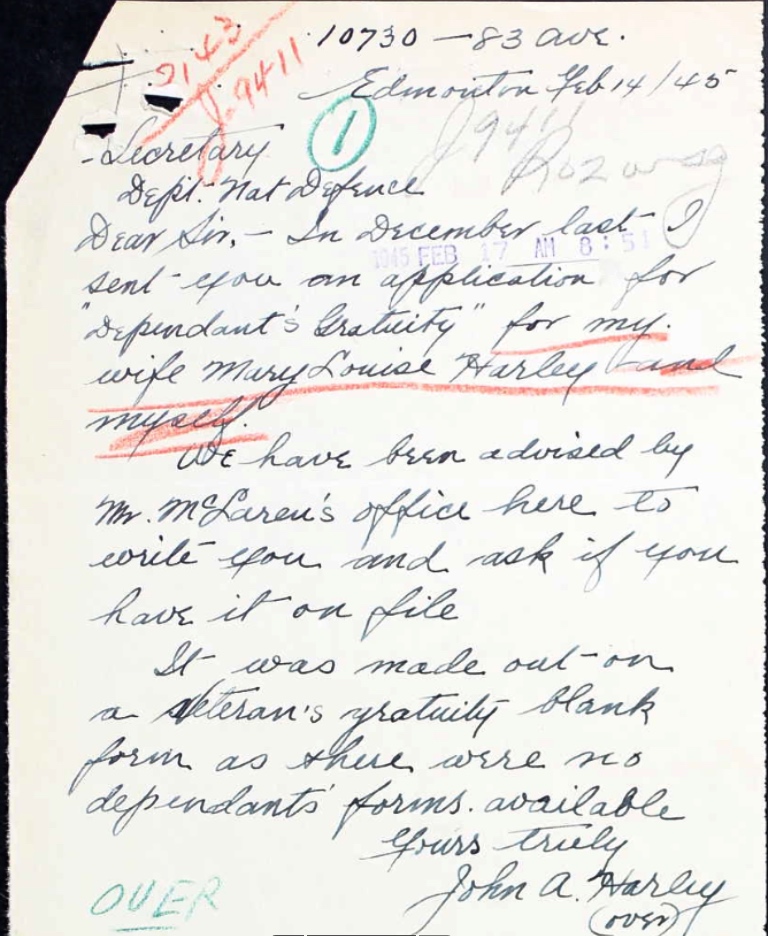 2143
J.9411
10730 — 83 ave.
Edmonton Feb 14/45
1
J9411
- Secretary
Dept. Nat Defence
Dear Sir, — In December last I
1945 FEB 17 AM 8:51
sent you an application for
"Dependant's Gratuity" for my
wife Mary Louise Harley and
myself.
We have been advised by
Mr. McLaren's office here to
write you and ask if you
have it on file
It was made out on
a Veteran's gratuity blank
form as there were no
dependants' forms. available
Yours truly
John A. Harley
(over)
OVER